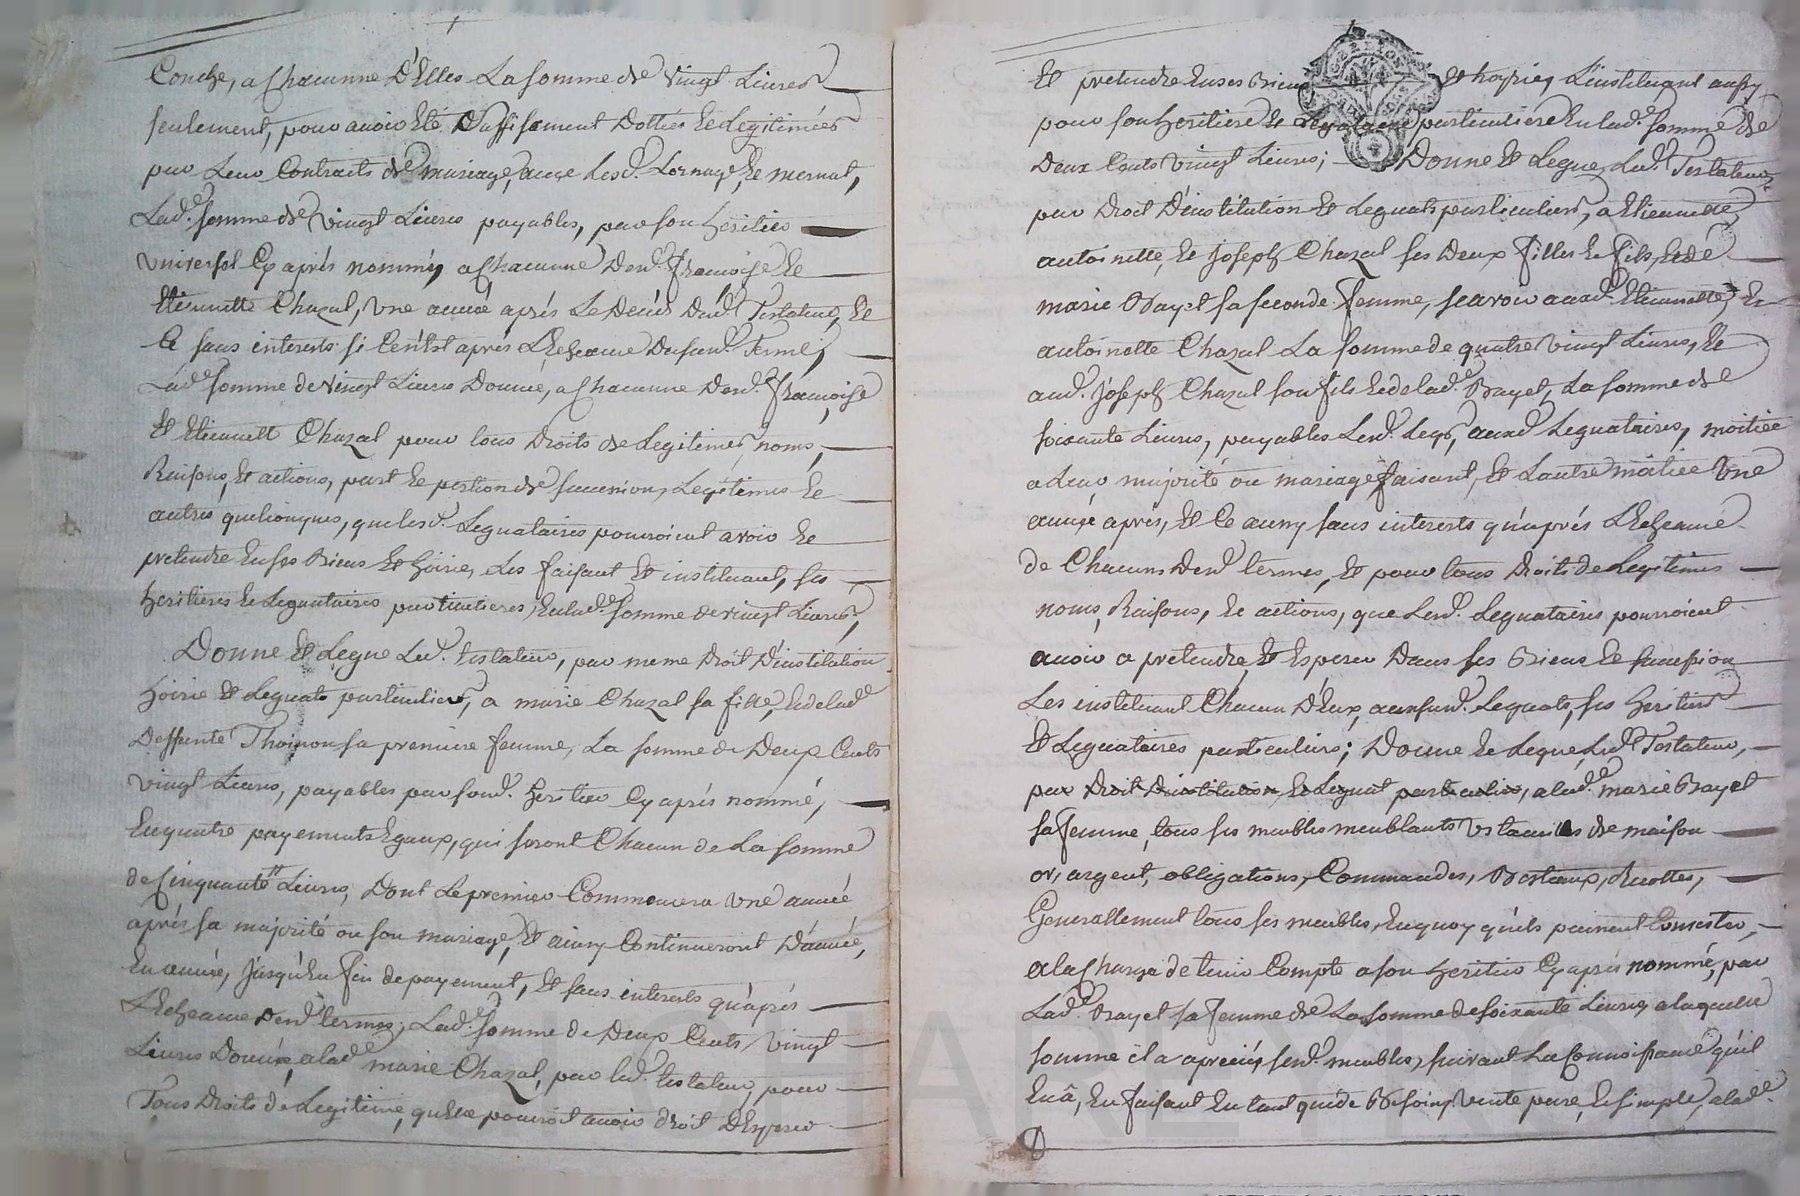 Couche, a chacunne d'Elles La somme de vingt Livres
seulement, pour avoir Eté Suffisament Dottés Et Legitimées
par Leur Contracts de mariage, avec Lesd.
Lad.e somme de vingt Livres payables, par son heritier
Universel Cy aprés nommé, a chacunne desd. francoise Et
Etiennette Chazal, Une année aprés Le Decés dud. Testateur, Et
Ce sans interests si Ce n'est aprés L'Echeance dususd. Terme,
Lad.e somme de vingt Livres Donnée, a chacunne desd. francoise
Et Etiennett Chazal pour tous Droits de Legitimes, noms,
Raisons, Et actions, part Et portion de succession, Legitimes Et
autres quelconques, que lesd. Leguataires pourroient avoir Et
pretendre En ses Biens Et hoirie, Les faisant Et instituant, ses
heritieres Et Leguataires particulieres, En lad.e somme de vingt Livres,
Donne Et Legue Led. testateur, par meme Droit D'institution
hoirie Et Leguats particulier, a marie Chazal sa fille, Et de lad.e
Deffunte Thoinon sa premiere femme, La somme de Deux Cents
vingt Livres, payables par sond. heritier Cy aprés nommé,
En quatre payements Egaux, qui seront Chacun de La somme
de Cinquante Livres, Dont Le premier Commencera Une année
aprés sa majorité ou son mariage, Et ainsy Continueront D'année,
En année, jusqu'En fin de payement, Et sans interests qu'aprés
L'Echeance desd. termes, Lad.e somme de Deux Cents vingt
Livres Donnée, a lad.e marie Chazal, par led. testateur, pour
Tous Droits de Legitime, qu'Elle pourroit avoir droit D'Esperer
Et pretendre En ses Biens Et hoirie, L'instituant aussy
pour son heritiere Et particuliere En lad.e somme de
Deux Cents vingt Livres; Donne Et Legue, Led. Testateur,
par Droit D'institution Et Leguats particuliers, a Etiennette,
antoinette, Et joseph Chazal ses Deux filles Et fils, Et de
marie Bayet sa seconde femme, scavoir auxd. Etiennette, Et
antoinette Chazal La somme de quatre vingt Livres, Et
aud. joseph Chazal son fils Et de lad.e Bayet, La somme de
soixante Livres, payables Lesd. Legs, auxd. Leguataires, moitiée
a Leur majorité ou mariage faisant, Et L'autre moitiée Une
année aprés, Et Ce aussy sans interests qu'aprés L'Echeance
de Chacuns desd. termes, Et pour tous Droits de Legitimes
noms, Raisons, Et actions, que Lesd. Leguataires pourroient
avoir a pretendre, Et Esperer Dans ses Biens Et succession
Les instituant Chacun D'Eux, aux susd. Leguats, ses heritiers
Et Leguataires particuliers; Donne Et Legue, Led. Testateur,
par Droit D'institution, Et Leguat particulier, a lad.e marie Bayet
sa femme, tous ses meubles meublants Ustancils de maison
or, argent, obligations, Commandes, Bestaux, Recottes,
Generallement tous ses meubles, En quoy qu'ils puissent Consister,
a la Charge de tenir Compte a son heritier Cy aprés nommé, par
Lad.e Bayet sa femme de La somme de soixante Livres a laquelle
somme il a apreciés sesd. meubles, suivant La Connoissance qu'il
En â, En faisant En tant que de Besoing vente pure, Et simple, a lad.e